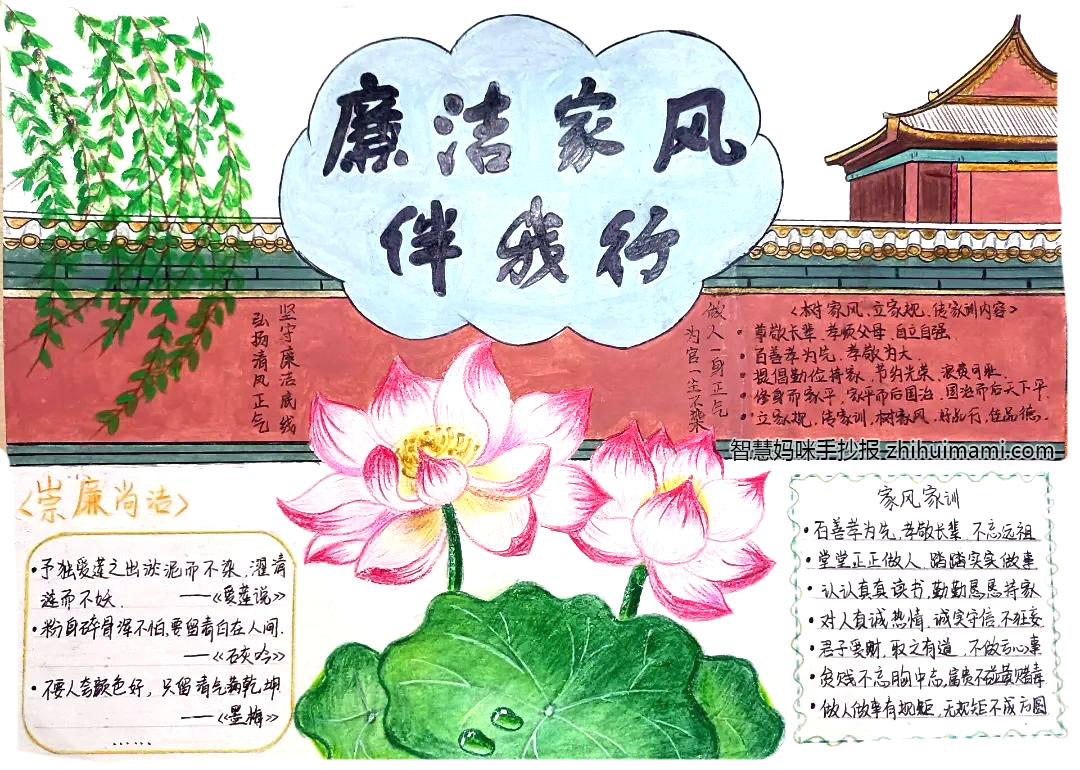 廉洁家风
伴我行
坚守廉洁底线
弘扬清风正气
做人一身正气
为官一尘不染
<树家风、立家规、传家训内容>
尊敬长辈、孝顺父母、自立自强.
百善孝为先、孝敬为大.
提倡勤俭持家、节约光荣、浪费可耻.
修身而家平,家平而后国治,国治而后天下平.
立家规,传家训,树家风,好品行,佳品德.
智慧妈咪手抄报 zhihuimami.com
<崇廉尚洁>
予独爱莲之出淤泥而不染,濯清
涟而不妖. ——《爱莲说》
粉身碎骨浑不怕,要留青白在人间.
——《石灰吟》
不要人夸颜色好,只留清气满乾坤
——《墨梅》
......
家风家训
百善孝为先,孝敬长辈,不忘远祖
堂堂正正做人,踏踏实实做事
认认真真读书,勤勤恳恳持家
对人真诚热情,诚实守信,不狂妄
君子爱财,取之有道,不做亏心事
贫贱不忘胸中志,富贵不碰黄赌毒
做人做事有规矩,无规矩不成方圆